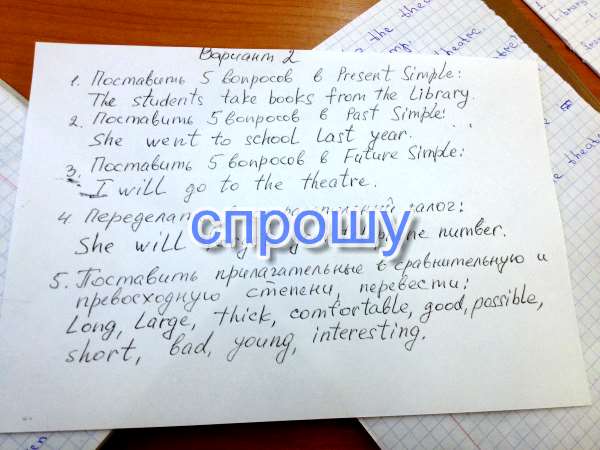 Вариант 2
1. Поставить 5 вопросов в Present Simple:
The students take books from the Library.
2. Поставить 5 вопросов в Past Simple:
She went to school last year.
3. Поставить 5 вопросов в Future Simple:
I will go to the theatre.
4. залог:
спрошу
She will number.
5. Поставить прилагательные в сравнительную и
превосходную степени, перевести:
Long, Large, thick, comfortable, good, possible,
short, bad, young, interesting.